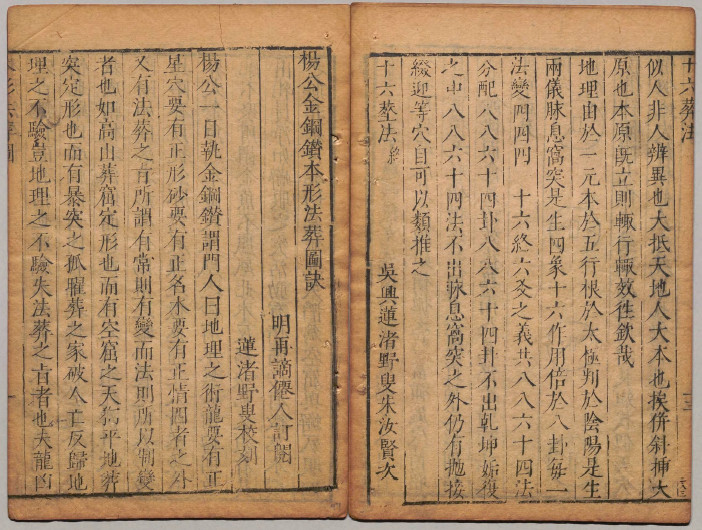 十六葬法
似人非人辨異也大抵天地人大本也挨併斜揷大
原也本原旣立則輙行輙效徃欽哉
地理由於一元本於五行根於太極判於陰陽是生
兩儀脉息窩突是生四象十六作用倍於八卦每一
法變四四四 十六終六爻之義共八八六十四法
分配八八六十四卦八八六十四卦不出乾坤姤復
之中八八六十四法不出脉息窩突之外仍有抛接
綴迎等穴自可以類推之
吳興蓮渚野叟朱汝賢次
十六塟法終
楊公金鋼鑽本形法葬圖訣
明再謫僊人訂閱
蓮渚野叟校刻
楊公一日執金鋼鑽謂門人曰地理之術龍要有正
星穴要有正形砂要有正名水要有正情四者之外
又有法葬之旨所謂有常則有變而法則所以制變
者也如高山葬窩定形也而有空窟之天狗平地葬
突定形也而有暴突之孤曜葬之家破人亡反歸地
理之不驗豈地理之不驗失法葬之旨者也夫龍凶